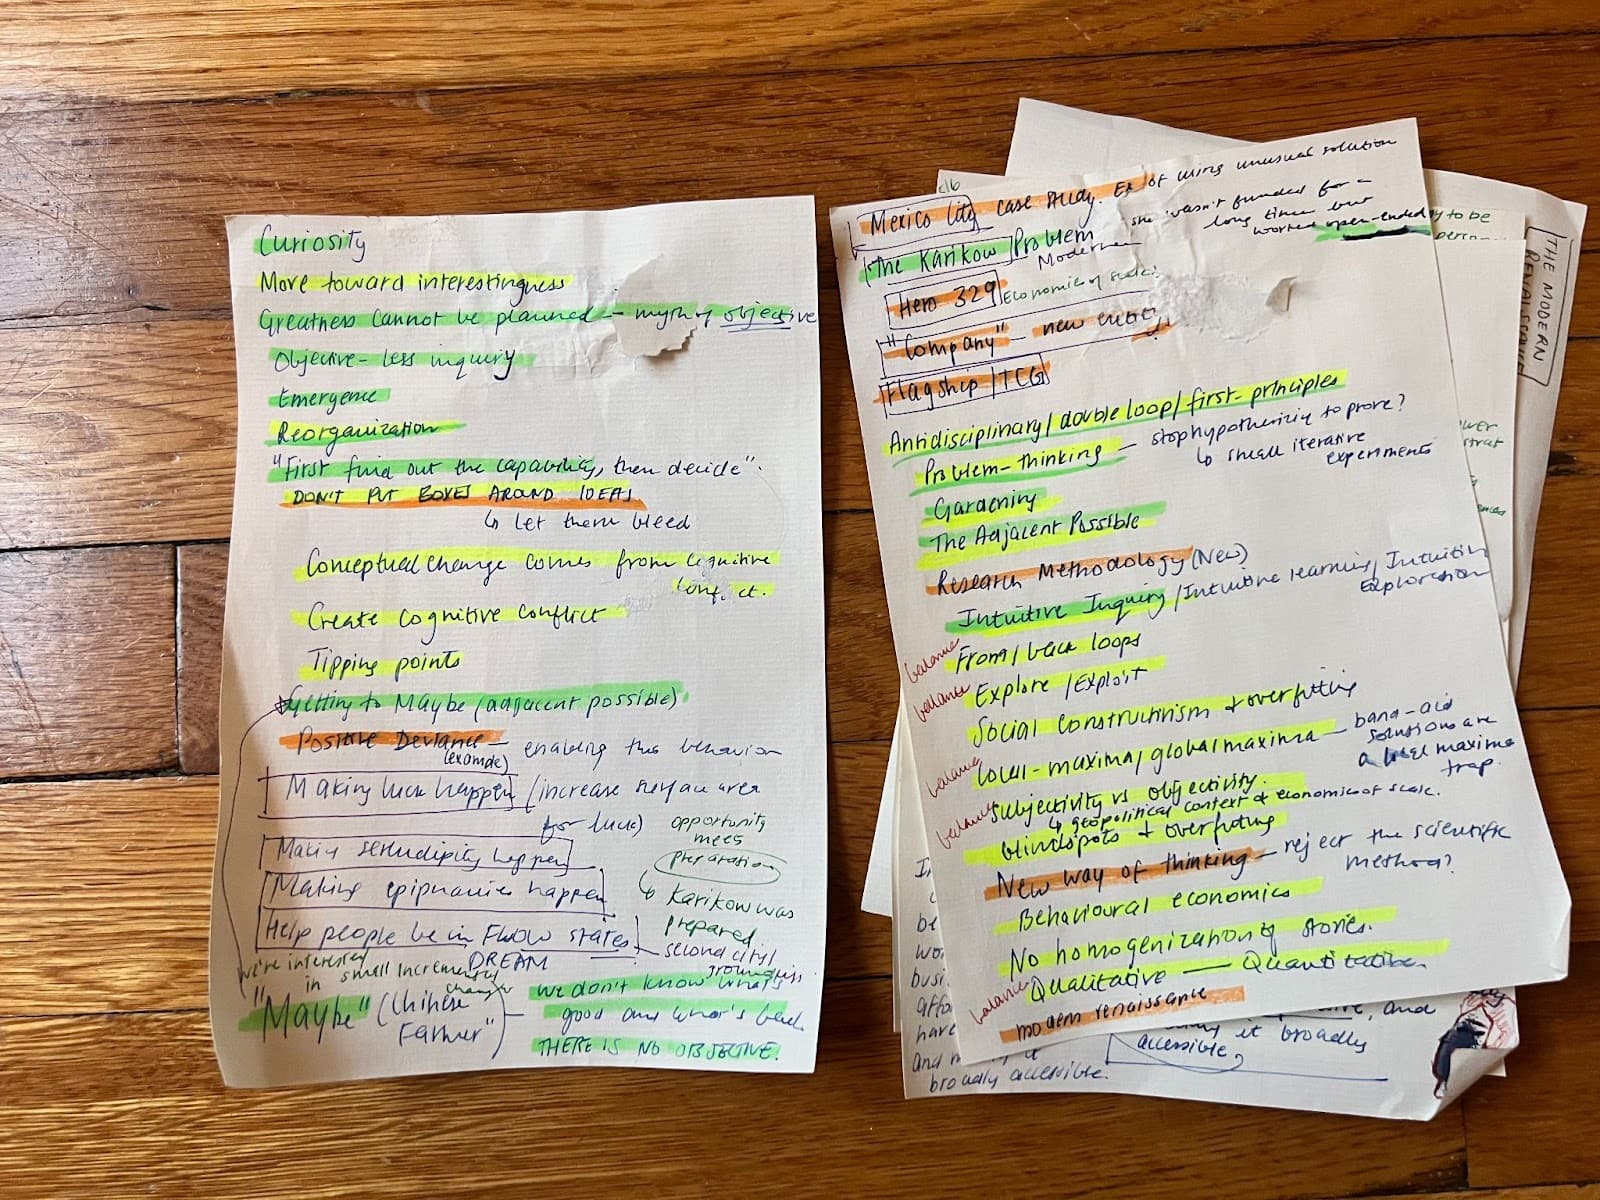 Curiosity
More toward interestingness
Greatness cannot be planned — myth of objective
Objective-less inquiry
Emergence
Reorganization
"First find out the capability, then decide".
DON'T PUT BOXES AROUND IDEAS
↳ let them bleed
Conceptual change comes from cognitive
conf. ct.
Create cognitive conflict
Tipping points
Getting to Maybe (adjacent possible)
Positive Deviance — enabling this behavior
(example)
Making luck happen / (increase surface area
for luck)
opportunity
meets
preparation
↳ Karikow was
prepared
Making serendipity happen
Making epiphanies happen
Help people be in FLOW states
DREAM
second city/
we're interested
in small incremental
changes
"Maybe" (Chinese
Farmer")
we don't know what's
good and what's bad.
THERE IS NO OBJECTIVE.
Mexico City case study. Ex of using unusual solution
The Karikow Problem
she wasn't funded for a
long time but
worked open-ended
Modern
Hero 329
Economies of scale
"Company" — new entity
Flagship / TCG
Antidisciplinary / double loop / first-principles
Problem-thinking — stop hypothesizing to prove?
↳ small iterative
experiments
Gardening
The Adjacent Possible
Research Methodology (New)
Intuitive Inquiry / Intuitive learning / Intuitive
Exploration
balance From / back loops
balance Explore / Exploit
Social constructivism + overfitting
balance local-maxima / global maxima — band-aid
solutions are
a local maxima
trap.
balance Subjectivity vs objectivity.
↳ geopolitical context & economies of scale.
blindspots + overfitting
New way of thinking — reject the scientific
method?
Behavioural economics
No homogenization of stories.
balance Qualitative — Quantitative.
modern renaissance
THE MODERN
RENAISSANCE
to be
and
it broadly
accessible,
have
and
broadly accessible.